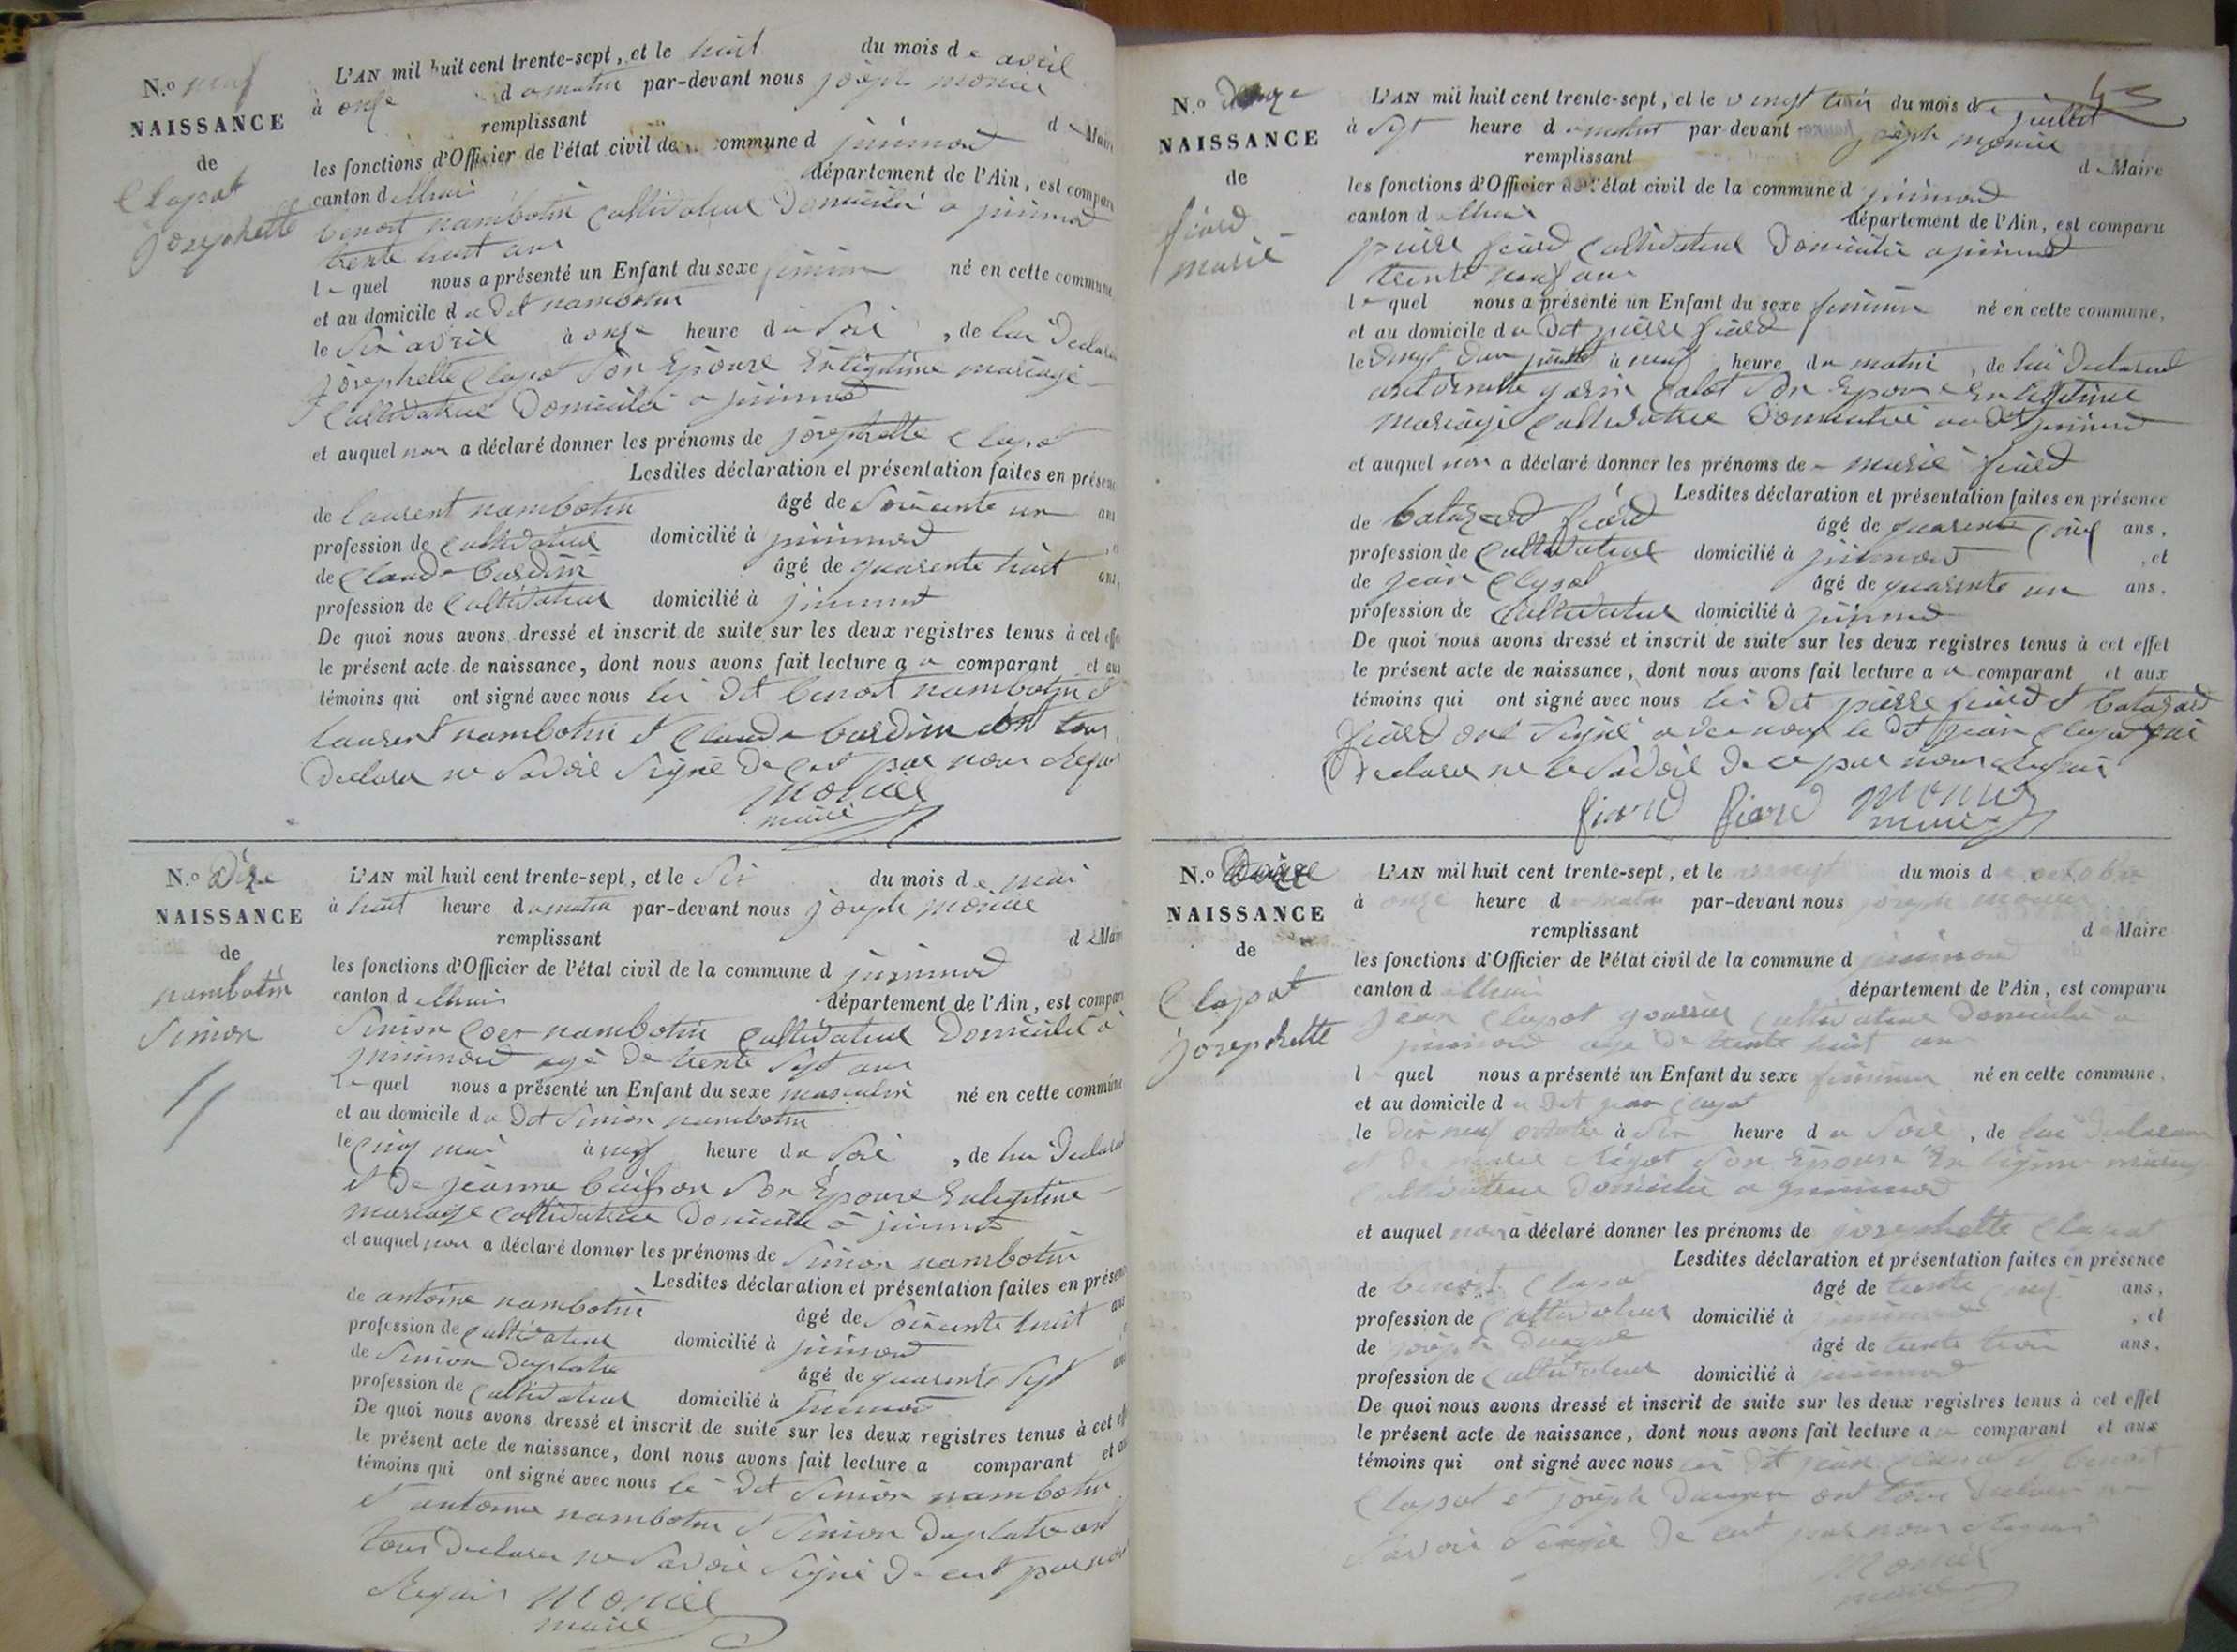 N.o neuf
NAISSANCE
de
Clapot
josephette
L'AN mil huit cent trente-sept, et le huit du mois de avril
à onze du matin par-devant nous joseph monier
remplissant d Maire
les fonctions d'Officier de l'état civil de commune d
canton d lhuis département de l'Ain, est compar
benoit nambotin cultivateur domicilié a
trente huit ans
le quel nous a présenté un Enfant du sexe féminin né en cette commune
et au domicile du dit nambotin
le six avril à onze heure du soir, de lui déclar
josephette Clapot son Epouse En légitime mariage
cultivatrice domicilié a
et auquel nous a déclaré donner les prénoms de josephette Clapot
Lesdites déclaration et présentation faites en présenc
de laurent nambotin âgé de soixante un ans
profession de cultivateur domicilié à
de Claude bardin âgé de quarente huit ans,
profession de cultivateur domicilié à
De quoi nous avons dressé et inscrit de suite sur les deux registres tenus à cet effe
le présent acte de naissance, dont nous avons fait lecture a u comparant et aux
témoins qui ont signé avec nous le dit benoit nambotin et
laurent nambotin et Claude bardin ont tous
declarer ne savoir signé de cet par nous requis
monier
maire
N.o dize
NAISSANCE
de
nambotin
Simon
L'AN mil huit cent trente-sept, et le six du mois de mai
à huit heure du matin par-devant nous joseph monier
remplissant d Maire
les fonctions d'Officier de l'état civil de la commune d
canton d lhuis département de l'Ain, est compar
Simon nambotin cultivateur domicilié à
agé de trente sept ans
le quel nous a présenté un Enfant du sexe masculin né en cette commune
et au domicile du dit Simon nambotin
le cinq mai à neuf heure du soir, de lui déclar
et de jeanne son Epouse En légitime
mariage cultivatrice domicilié à
et auquel nous a déclaré donner les prénoms de Simon nambotin
Lesdites déclaration et présentation faites en présenc
de antoine nambotin âgé de soixante huit ans
profession de cultivateur domicilié à
de Simon duplatre âgé de quarente sept ans
profession de cultivateur domicilié à
De quoi nous avons dressé et inscrit de suite sur les deux registres tenus à cet eff
le présent acte de naissance, dont nous avons fait lecture a comparant et aux
témoins qui ont signé avec nous le dit Simon nambotin
et antoine nambotin et Simon duplatre ont
tous declarer ne savoir signé de cet par nous
Requis monier
maire
N.o
NAISSANCE
de
fiard
marie
L'AN mil huit cent trente-sept, et le vingt trois du mois de juillet
à sept heure du matin par devant joseph monier
remplissant d Maire
les fonctions d'Officier de l'état civil de la commune d
canton d lhuis département de l'Ain, est comparu
pierre fiard cultivateur domicilié a
trente neuf ans
le quel nous a présenté un Enfant du sexe féminin né en cette commune,
et au domicile du dit pierre fiard
le vingt deux juillet à neuf heure du matin, de lui déclarant
son Epouse En légitime
mariage cultivatrice domicilié au dit
et auquel nous a déclaré donner les prénoms de marie fiard
Lesdites déclaration et présentation faites en présence
de batazard fiard âgé de quarente cinq ans,
profession de cultivateur domicilié à , et
de jean Clapot âgé de quarente un ans,
profession de cultivateur domicilié à
De quoi nous avons dressé et inscrit de suite sur les deux registres tenus à cet effet
le présent acte de naissance, dont nous avons fait lecture a u comparant et aux
témoins qui ont signé avec nous les dit pierre fiard et batazard
fiard ont signé avec nous le dit jean Clapot qui
declarer ne le savoir de ce par nous requis
fiard fiard monier
maire
N.o Douze
NAISSANCE
de
Clapot
josephette
L'AN mil huit cent trente-sept, et le vingt du mois d octobre
à onze heure du matin par-devant nous joseph monier
remplissant d Maire
les fonctions d'Officier de l'état civil de la commune d
canton d lhuis département de l'Ain, est comparu
jean Clapot cultivateur domicilié a
agé de trente huit ans
l quel nous a présenté un Enfant du sexe féminin né en cette commune,
et au domicile du dit jean Clapot
le dix neuf octobre à six heure du soir, de lui déclarant
et de marie son Epouse En légitime mariage
cultivatrice domicilié a
et auquel nous a déclaré donner les prénoms de josephette Clapot
Lesdites déclaration et présentation faites en présence
de benoit Clapot âgé de trente cinq ans,
profession de cultivateur domicilié à , et
de joseph âgé de trente trois ans,
profession de cultivateur domicilié à
De quoi nous avons dressé et inscrit de suite sur les deux registres tenus à cet effet
le présent acte de naissance, dont nous avons fait lecture a comparant et aux
témoins qui ont signé avec nous les dit jean Clapot et benoit
Clapot et joseph ont tous declarer ne
savoir signé de cet par nous Requis
monier
maire